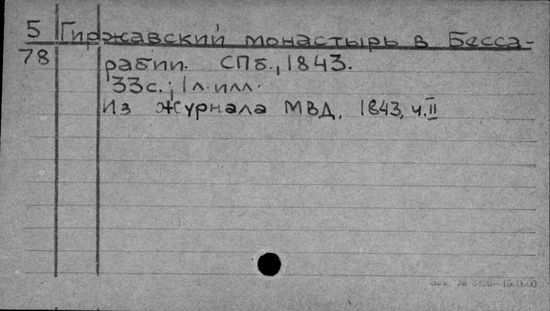 5 Гиржавский монастырь в Бесса-
78 рабии. СПб., 1843.
33с.; 1л. илл.
Из журнала МВД, 1843, ч. II